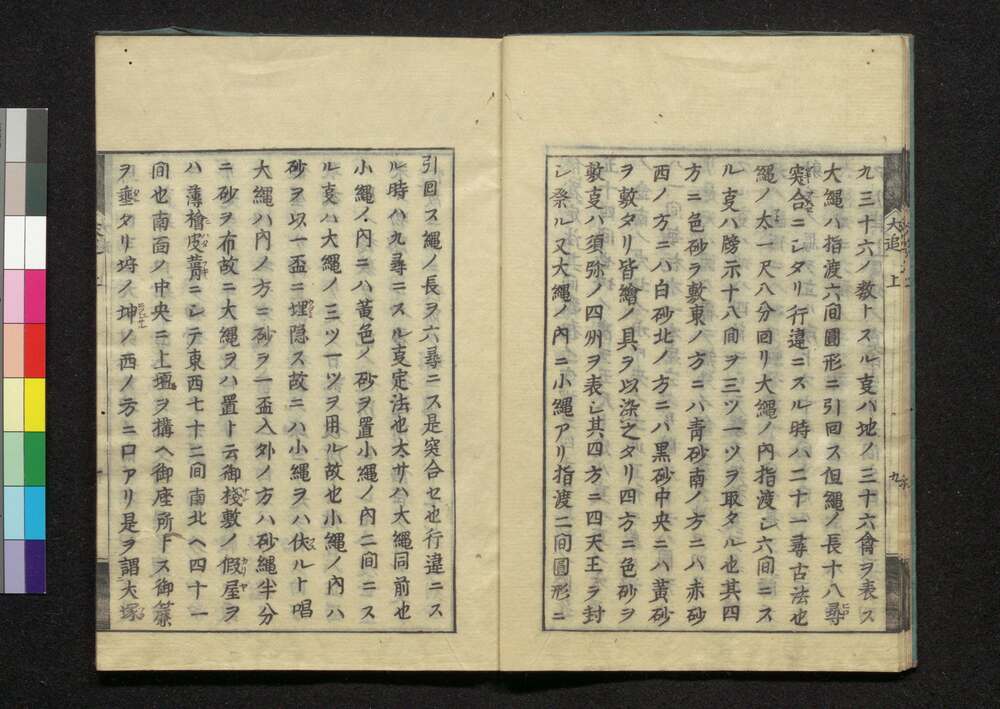 九三十六ノ数トスル叓ハ地ノ三十六禽ヲ表ス
大縄ハ指渡六間圓形ニ引回ス但縄ノ長十八尋
突合ニシタリ行違ニスル時ハ二十一尋古法也
縄ノ太一尺八分回リ大縄ノ内指渡シ六間ニス
ル叓ハ牓示十八間ヲ三ツ一ツヲ取タル也其四
方ニ色砂ヲ敷東ノ方ニハ青砂南ノ方ニハ赤砂
西ノ方ニハ白砂北ノ方ニハ黒砂中央ニハ黄砂
ヲ敷タリ皆繪ノ具ヲ以染之タリ四方ニ色砂ヲ
敷叓ハ須弥ノ四州ヲ表シ其四方ニ四天王ヲ封
シ祭ル又大縄ノ内ニ小縄アリ指渡二間圓形ニ
犬追 上
九
引回ス縄ノ長ヲ六尋ニス是突合セ也行違ニス
ル時ハ九尋ニスル叓定法也太サハ大縄同前也
小縄ノ内ニハ黄色ノ砂ヲ置小縄ノ内二間ニス
ル叓ハ大縄ノ三ツ一ツヲ用ル故也小縄ノ内ハ
砂ヲ以一盃ニ埋隠ス故ニハ小縄ヲハ伏ルト唱
大縄ハ内ノ方ニ砂ヲ一盃入外ノ方ハ砂縄半分
ニ砂ヲ布故ニ大縄ヲハ置ト云御棧敷ノ假屋ヲ
ハ薄檜皮葺ニシテ東西七十二間南北ヘ四十一
間也南面ノ中央ニ上壇ヲ構ヘ御座所トス御簾
ヲ垂タリ埒ノ坤ノ西ノ方ニ口アリ是ヲ謂犬塚